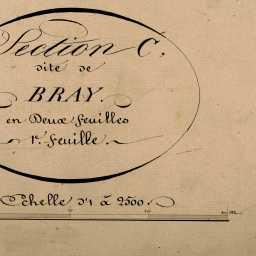 Section C.
dite de
BRAY.
en Deux feuilles
1e. feuille.
Echelle d'1 à 2500.